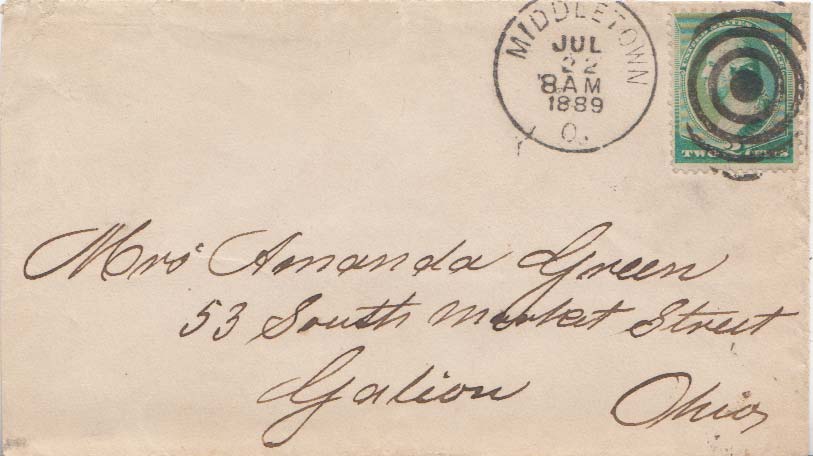 MIDDLETOWN
JUL
22
8 AM
1889
O.
UNITED STATES
TWO 2 CENTS
Mrs Amanda Green
53 South Market Street
Galion Ohio